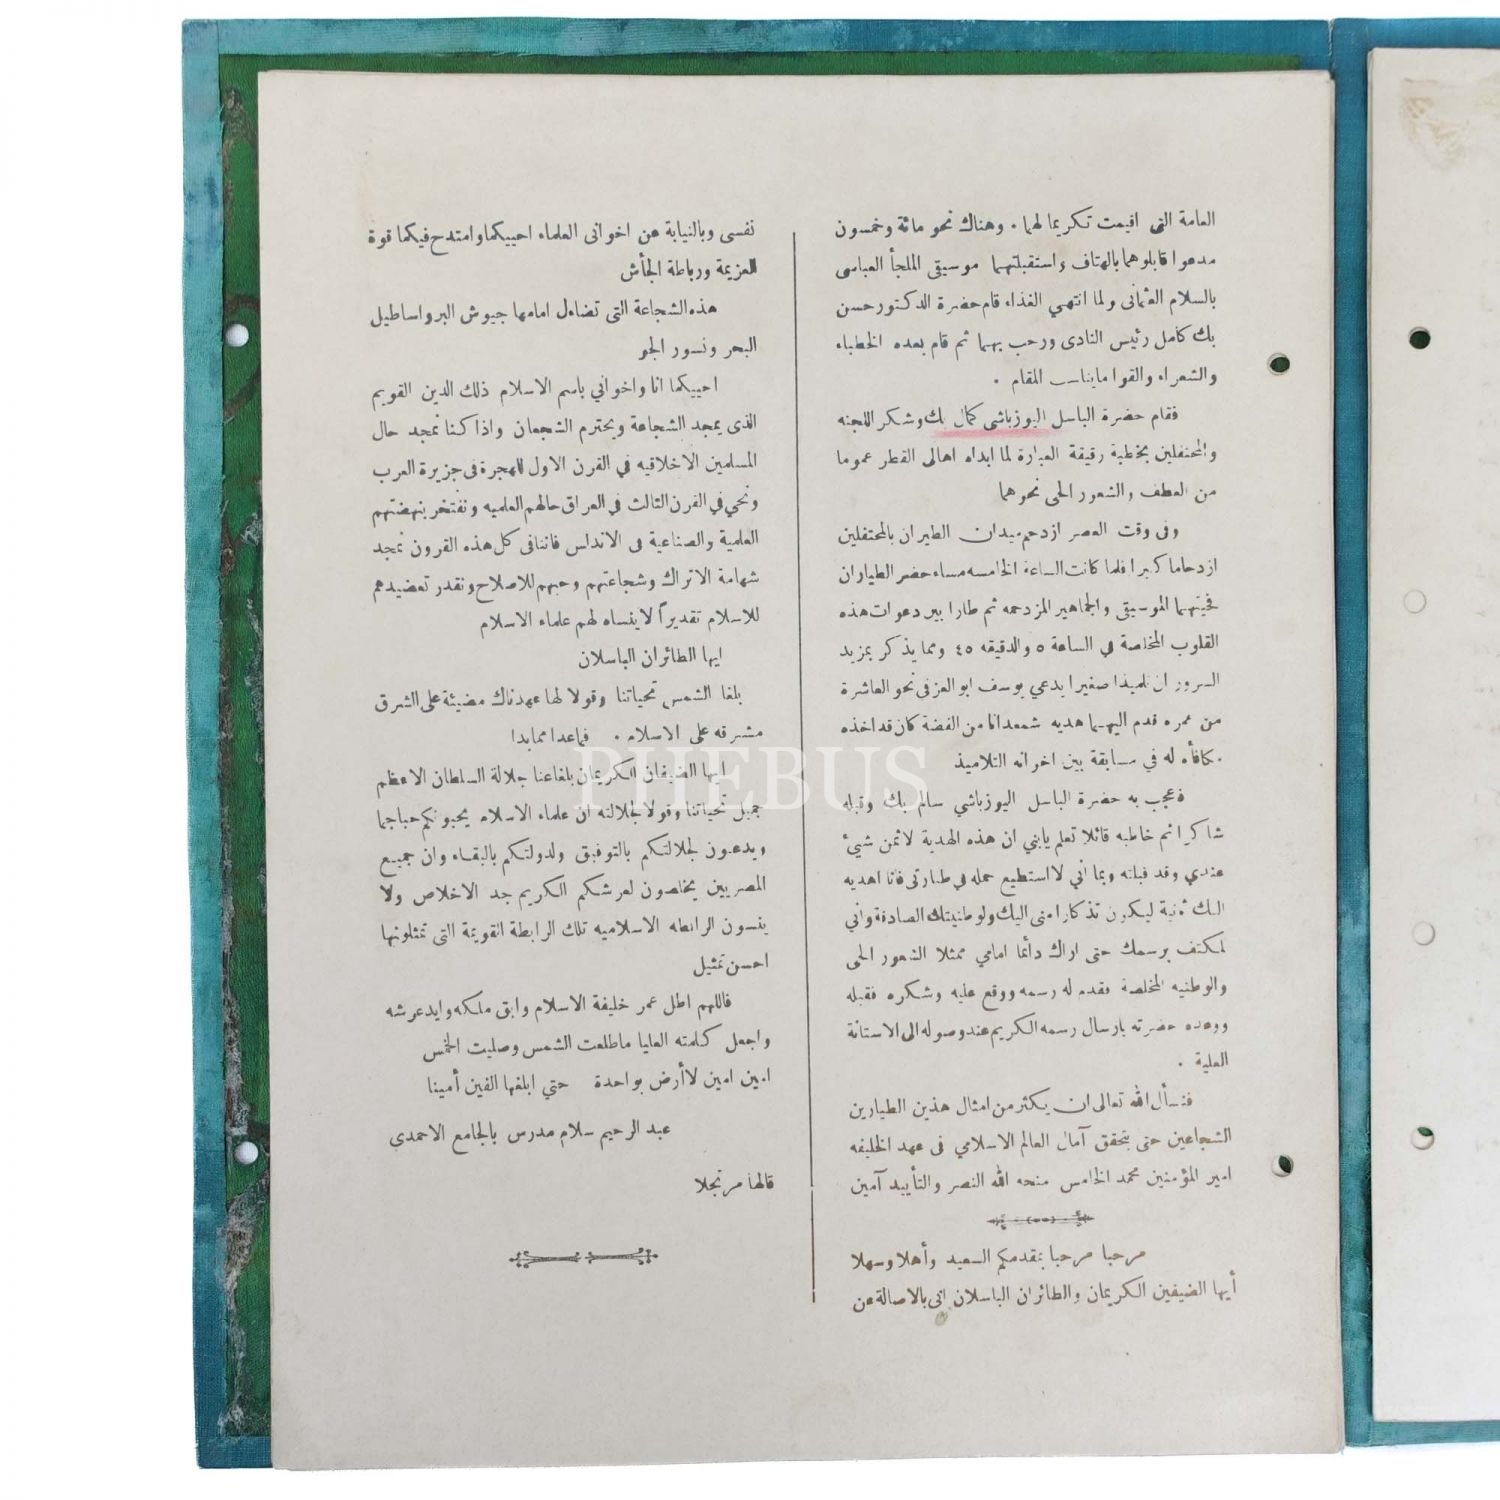 العامة التى اقيمت تكريما لهما . وهناك نحو مائة وخمسون
مدعوا قابلوهما بالهتاف واستقبلتهما موسيقى الملجأ العباسى
بالسلام العثمانى ولما انتهي الغذاء قام حضرة الدكتور حسن
بك كامل رئيس النادى ورحب بهما ثم قام بعده الخطباء
والشعراء والقوا مايناسب المقام .
فقام حضرة الباسل اليوزباشى كمال بك وشكر اللجنه
والمحتفلين بخطبة رقيقة العبارة لما ابداه اهالى القطر عموما
من العطف والشعور الحى نحوهما
وفى وقت العصر ازدحم ميدان الطيران بالمحتفلين
ازدحاما كبيرا فلما كانت الساعة الخامسه مساء حضر الطياران
فحيتهما الموسيقى والجماهير المزدحمه ثم طارا بين دعوات هذه
القلوب المخلصة في الساعة ٥ والدقيقه ٤٥ ومما يذكر بمزيد
السرور ان تلميذا صغيرا يدعي يوسف ابو العز فى نحو العاشرة
من عمره قدم اليهما هديه شمعدانا من الفضة كان قد اخذه
مكافأه له في مسابقة بين اخوانه التلاميذ
فعجب به حضرة الباسل اليوزباشي سالم بك وقبله
شاكرا ثم خاطبه قائلا تعلم يابني ان هذه الهدية لاثمن شيئ
عندي وقد قبلته وبما اني لا استطيع حمله في طيارتى فانا اهديه
اليك ثانية ليكون تذكارا منى اليك ولوطنيتك الصادقة واني
لمكتف برسمك حتى اراك دائما امامي ممثلا الشعور الحى
والوطنيه المخلصة فقدم له رسمه ووقع عليه وشكره فقبله
ووعده حضرته بارسال رسمه الكريم عند وصوله الى الاستانة
العلية .
فنسأل الله تعالى ان يكثر من امثال هذين الطيارين
الشجاعين حتى تتحقق آمال العالم الاسلامي فى عهد الخليفه
امير المؤمنين محمد الخامس منحه الله النصر والتأييد آمين
مرحبا مرحبا بمقدمكم السعيد وأهلا وسهلا
أيها الضيفين الكريمان والطائران الباسلان انى بالاصالة عن
نفسى وبالنيابة عن اخوانى العلماء احييكما وامتدح فيكما قوة
العزيمة ورباطة الجأش
هذه الشجاعة التى تضاءل امامها جيوش البر واساطيل
البحر ونسور الجو
احييكما انا واخواني باسم الاسلام ذلك الدين القويم
الذى يمجد الشجاعة ويحترم الشجعان واذا كنا نمجد حال
المسلمين الاخلاقيه في القرن الاول للهجرة فى جزيرة العرب
ونحي في القرن الثالث في العراق حالهم العلميه ونفتخر بنهضتهم
العلمية والصناعية فى الاندلس فاننا فى كل هذه القرون نمجد
شهامة الاتراك وشجاعتهم وحبهم للاصلاح ونقدر تعضيدهم
للاسلام تقديراً لا ينساه لهم علماء الاسلام
ايها الطائران الباسلان
بلغا الشمس تحياتنا وقولا لها عهدناك مضيئة على الشرق
مشرقه على الاسلام . فماعدا ممابدا
ايها الضيفان الكريمان بلغا عنا جلالة السلطان الاعظم
جميل تحياتنا وقولا لجلالته ان علماء الاسلام يحبونكم حبا جما
ويدعون لجلالتكم بالتوفيق ولدولتكم بالبقاء وان جميع
المصريين يخلصون لعرشكم الكريم جد الاخلاص ولا
ينسون الرابطه الاسلاميه تلك الرابطة القويمة التى تمثلونها
احسن تمثيل
فاللهم اطل عمر خليفة الاسلام وابق ملكه وايد عرشه
واجعل كلمته العليا ماطلعت الشمس وصليت الخمس
امين امين لا أرض بواحدة حتي ابلغها الفين أمينا
عبد الرحيم سلام مدرس بالجامع الاحمدى
قالها مرتجلا
PHEBUS